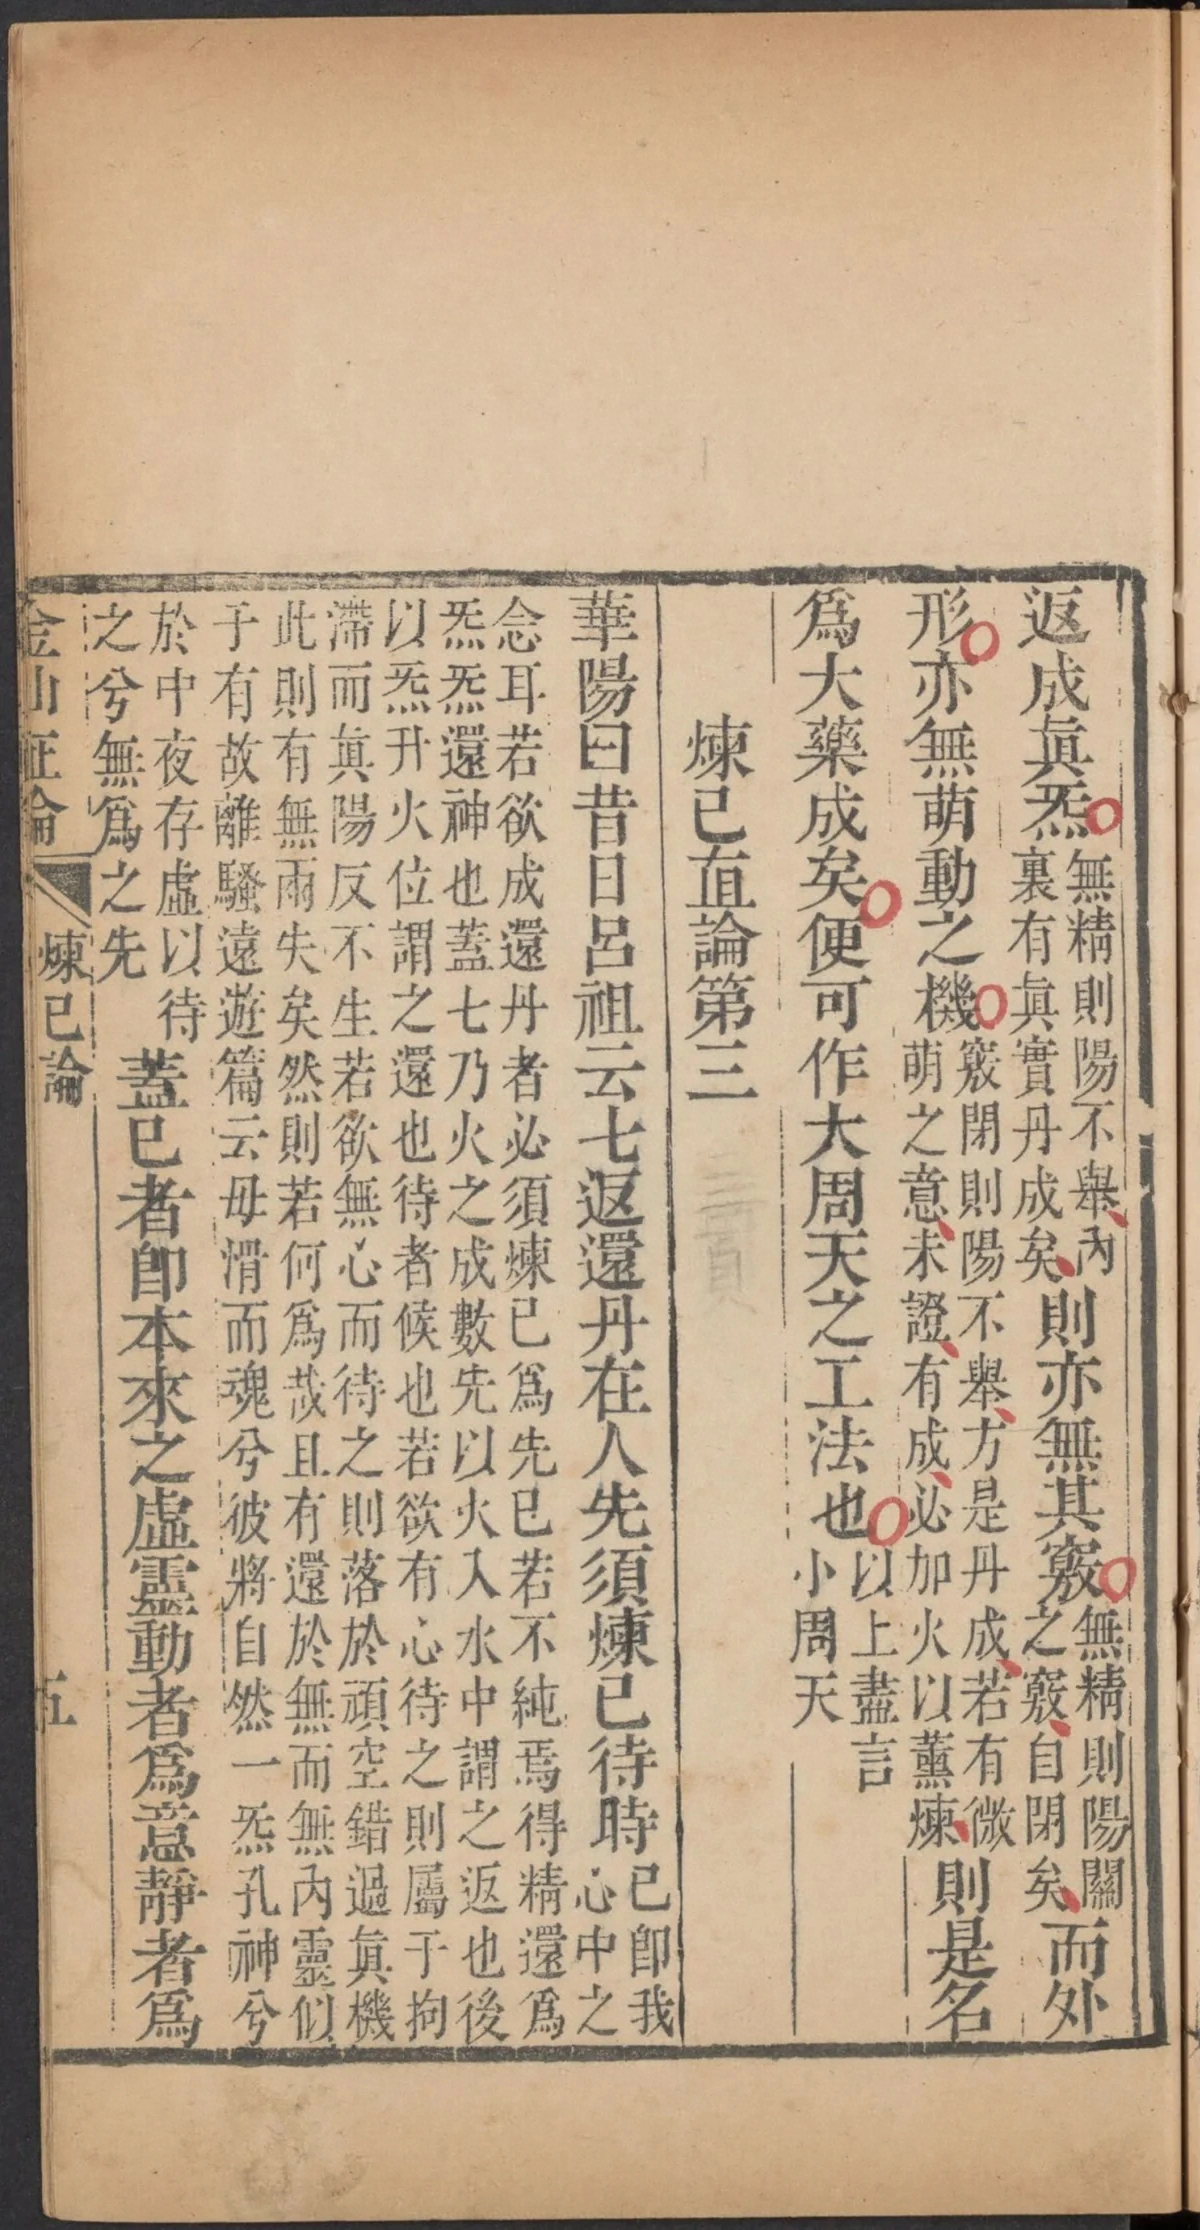 返成眞炁無精則陽不舉內裏有眞實丹成矣則亦無其竅無精則陽關之竅自閉矣而外
形亦無萌動之機竅閉則陽不舉方是丹成若有微萌之意未證有成必加火以薰煉則是名
爲大藥成矣便可作大周天之工法也以上盡言小周天
煉己直論第三
華陽曰昔日呂祖云七返還丹在人先須煉己待時己卽我心中之
念耳若欲成還丹者必須煉己爲先己若不純焉得精還爲
炁炁還神也蓋七乃火之成數先以火入水中謂之返也後
以炁升火位謂之還也待者候也若欲有心待之則屬于拘
滯而眞陽反不生若欲無心而待之則落於頑空錯過眞機
此則有無兩失矣然則若何爲哉且有還於無而無內靈似
子有故離騷遠遊篇云毋滑而魂兮彼將自然一炁孔神兮
於中夜存虛以待之兮無爲之先蓋己者卽本來之虛靈動者爲意靜者爲
金仙証論 煉己論 五